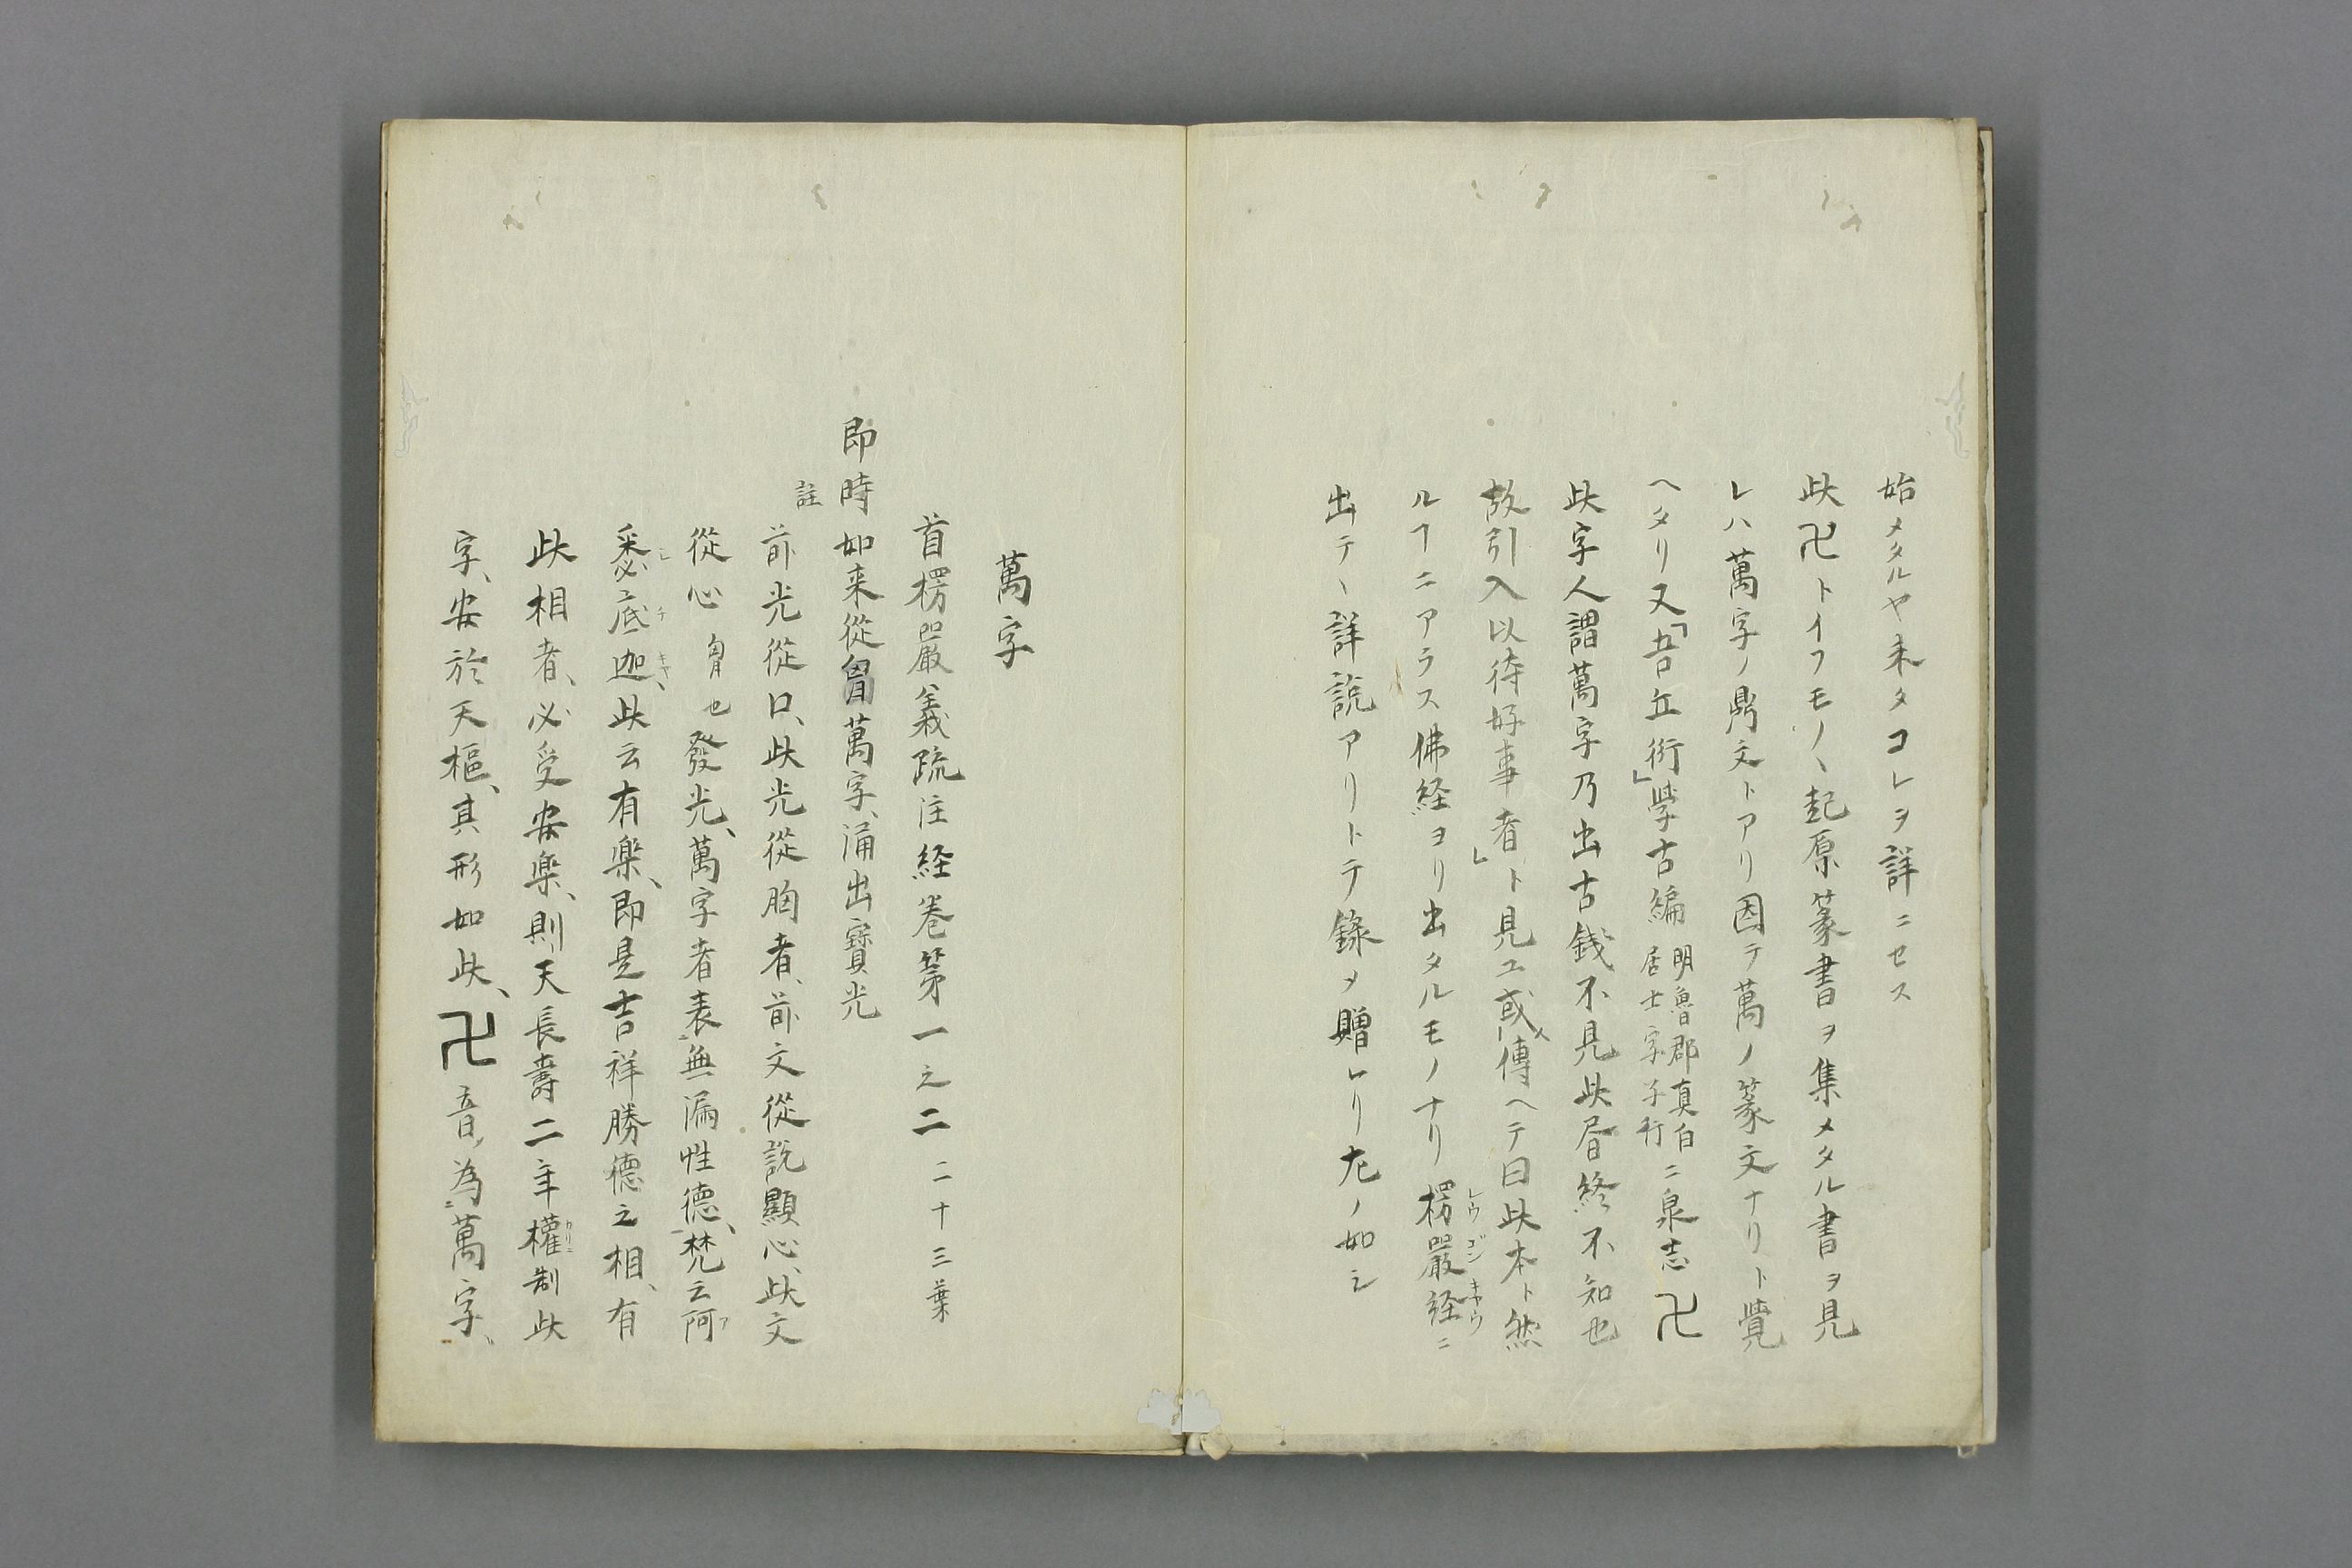 始メタルヤ未タコレヲ詳ニセス
此卍トイフモノヽ起原篆書ヲ集メタル書ヲ見
レハ萬字ノ鼎文トアリ因テ萬ノ篆文ナリト覺
ヘタリ又「吾丘衍」學古編 明魯郡真白居士字子行 ニ泉志卍
此字人謂萬字乃出古銭不見此昬終不知也
故引入以待好事者」ト見ユ或人傳ヘテ曰此本ト然
ルヿニアラス佛経ヨリ出タルモノナリ楞嚴経ニ
レウゴンキヤウ
出テヽ詳説アリトテ錄メ贈レリ尤ノ如シ
萬字
首楞嚴義疏注経巻第一之二 二十三葉
即時如来從胷萬字、涌出寶光
註
前光從口、此光從胸者、前文從説顯心、此文
從心 胷也 發光、萬字者表無漏性德、梵云阿
ア
悉底迦、此云有楽、即是吉祥勝德之相、有
シチキヤ
此相者、必受安楽、則天長壽二年權制此
カリニ
字、安於天樞、其形如此、卍音為萬字、